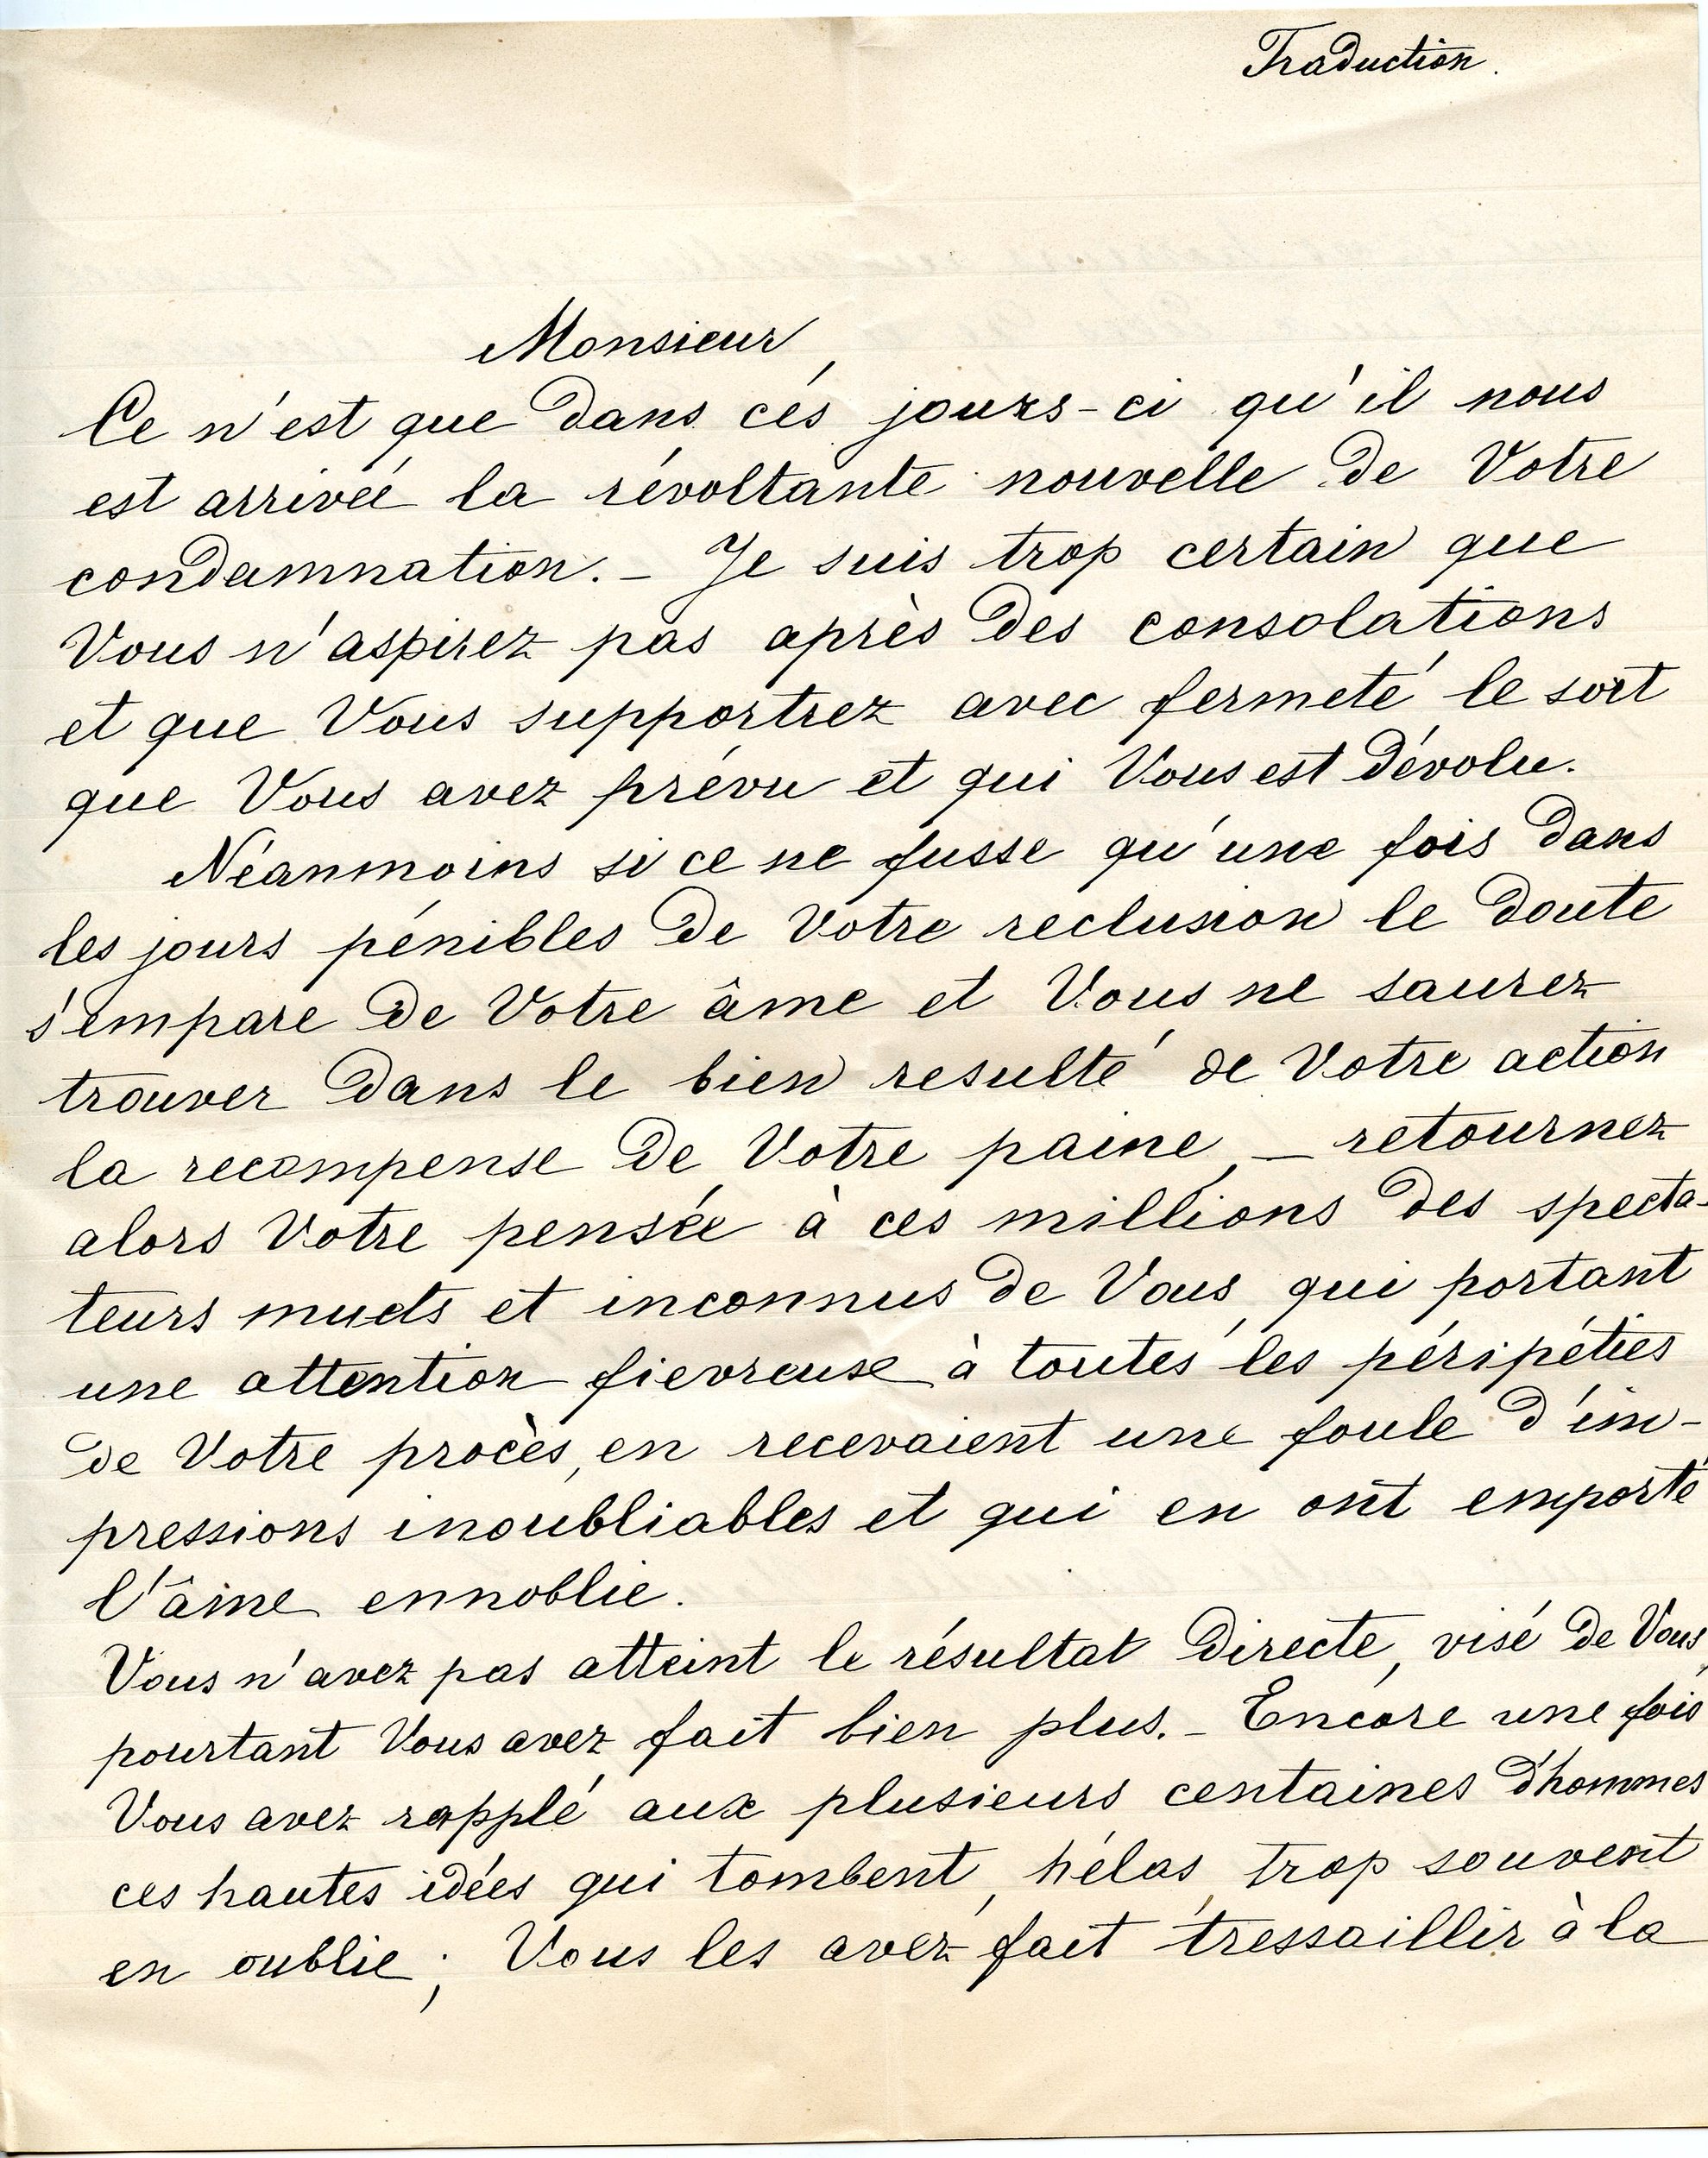 Traduction.
Monsieur,
Ce n'est que dans ces jours-ci qu'il nous
est arrivée la révoltante nouvelle de Votre
condamnation. – Je suis trop certain que
Vous n'aspirez pas après des consolations
et que Vous supportrez avec fermeté le sort
que Vous avez prévu et qui Vous est dévolu.
Néanmoins si ce ne fusse qu'une fois dans
les jours pénibles de Votre reclusion le doute
s'empare de Votre âme et Vous ne saurez
trouver dans le bien resulté de Votre action
la recompense de Votre paine, – retournez
alors Votre pensée à ces millions des specta-
teurs muets et inconnus de Vous, qui portant
une attention fievreuse à toutes les péripéties
de Votre procès, en recevaient une foule d'im-
pressions inoubliables et qui en ont emporté
l'âme ennoblie.
Vous n'avez pas atteint le résultat directe, visé de Vous,
pourtant Vous avez fait bien plus. – Encore une fois
Vous avez rapplé aux plusieurs centaines d'hommes
ces hautes idées qui tombent, hélas, trop souvent
en oublie; Vous les avez fait tressaillir à la